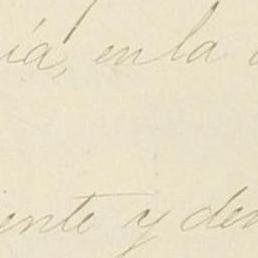 ía, en la
ente y de